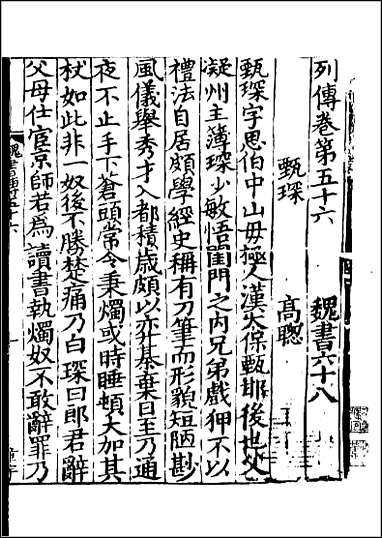 列傳卷第五十六　魏書六十八
甄琛　高聰
甄琛字思伯中山毋極人漢太保甄邯後也父
凝州主簿琛少敏悟閨門之內兄弟戲狎不以
禮法自居頗學經史稱有刀筆而形貌短陋尠
風儀舉秀才入都積歲頗以弈棊棄日至乃通
夜不止手下蒼頭常令秉燭或時睡頓大加其
杖如此非一奴後不勝楚痛乃白琛曰郎君辭
父母仕宦京師若為讀書執燭奴不敢辭罪乃